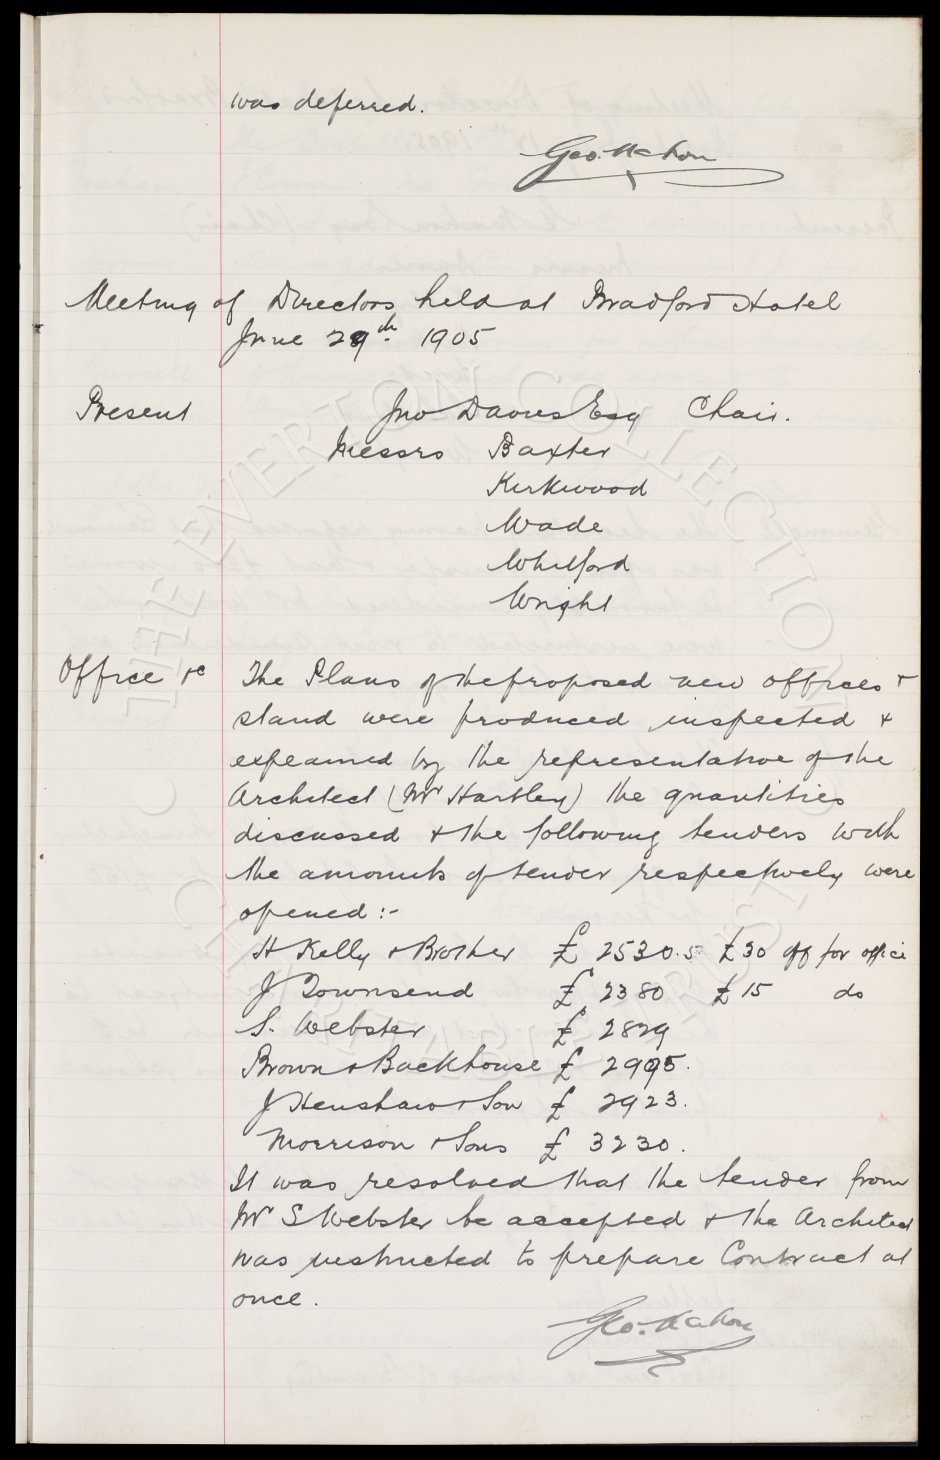 was deferred.
Geo. Mahon
Meeting of Directors held at Bradford Hotel
June 29th. 1905
Present Jno Davies Esq Chair.
Messrs Baxter
Kirkwood
Wade
Whitford
Wright
Office &c The Plans of the proposed new offices &
stand were produced inspected &
explained by the representative of the
Architect (Mr Hartley) the quantities
discussed & the following tenders with
the amounts of tender respectively were
opened :-
H Kelly & Brother £ 2530.5 £30 off for office
J Townsend £ 2380 £15 do
S. Webster £ 2829
Brown & Backhouse £ 2905.
J Henshaw & Son £ 2923.
Morrison & Sons £ 3230.
It was resolved that the tender from
Mr S Webster be accepted & the Architect
was instructed to prepare Contract at
once.
Geo. Mahon
THE EVERTON COLLECTION
CHARITABLE TRUST